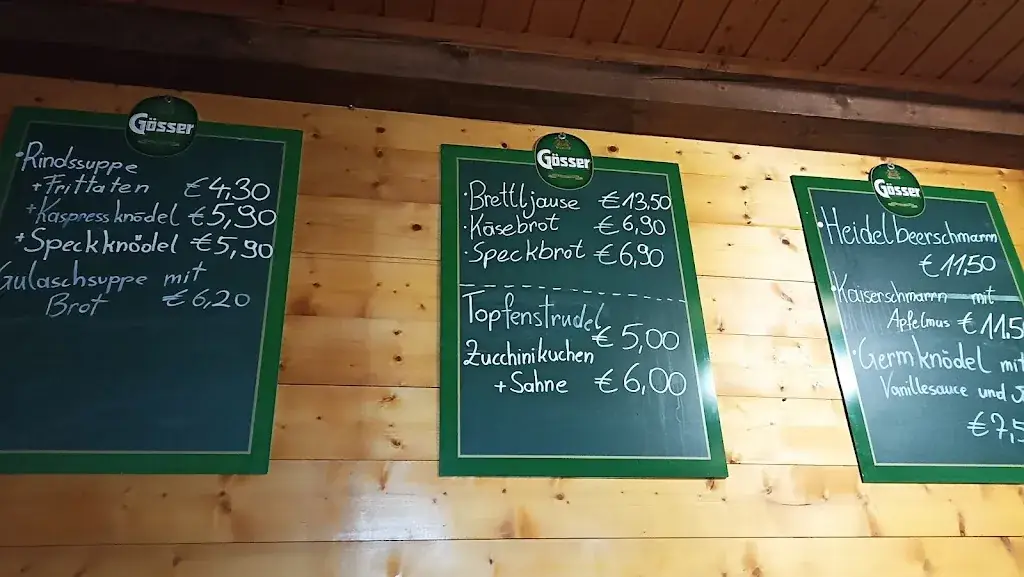 Gösser
• Rindssuppe
+ Frittaten €4,30
+ Kaspressknödel €5,90
+ Speckknödel €5,90
Gulaschsuppe mit
Brot €6,20
Gösser
• Brettljause €13,50
• Käsebrot €6,90
• Speckbrot €6,90
Topfenstrudel
€5,00
Zucchinikuchen
+ Sahne €6,00
Gösser
• Heidelbeerschmarrn
€11,50
• Kaiserschmarrn mit
Apfelmus €11,5
• Germknödel mit
Vanillesauce und
€7,5